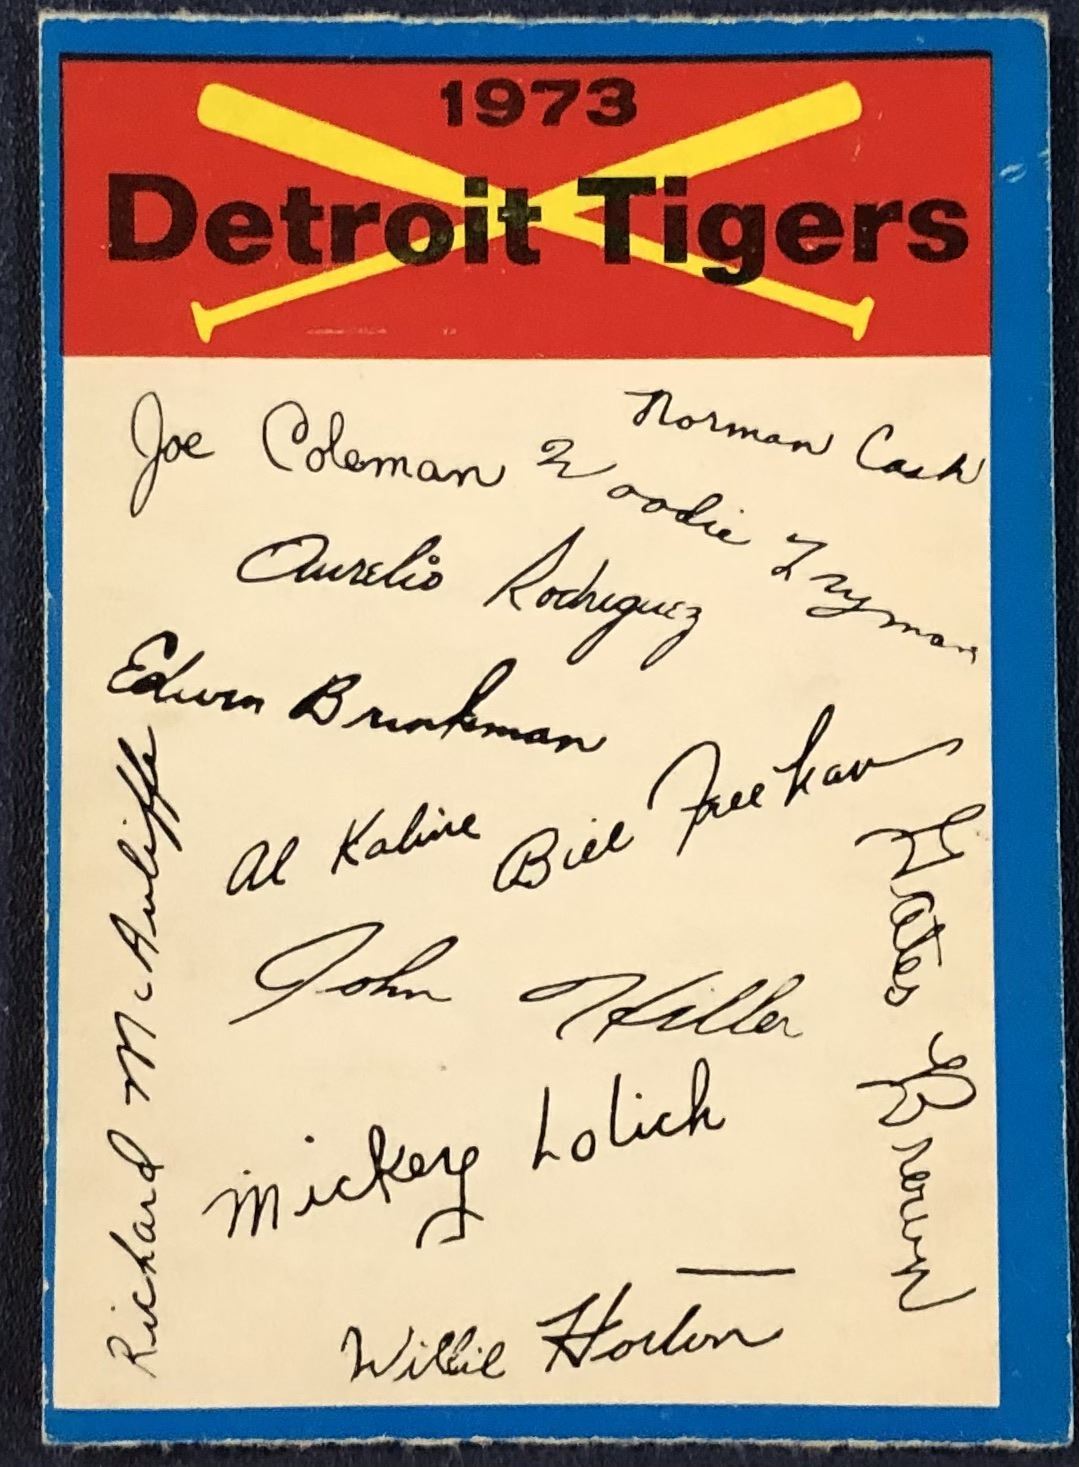 1973
Detroit Tigers
Norman Cash
Joe Coleman
Woodie Fryman
Aurelio Rodriguez
Edwin Brinkman
Bill Freehan
Al Kaline
Gates Brown
Richard McAuliffe
John Hiller
Mickey Lolich
Willie Horton